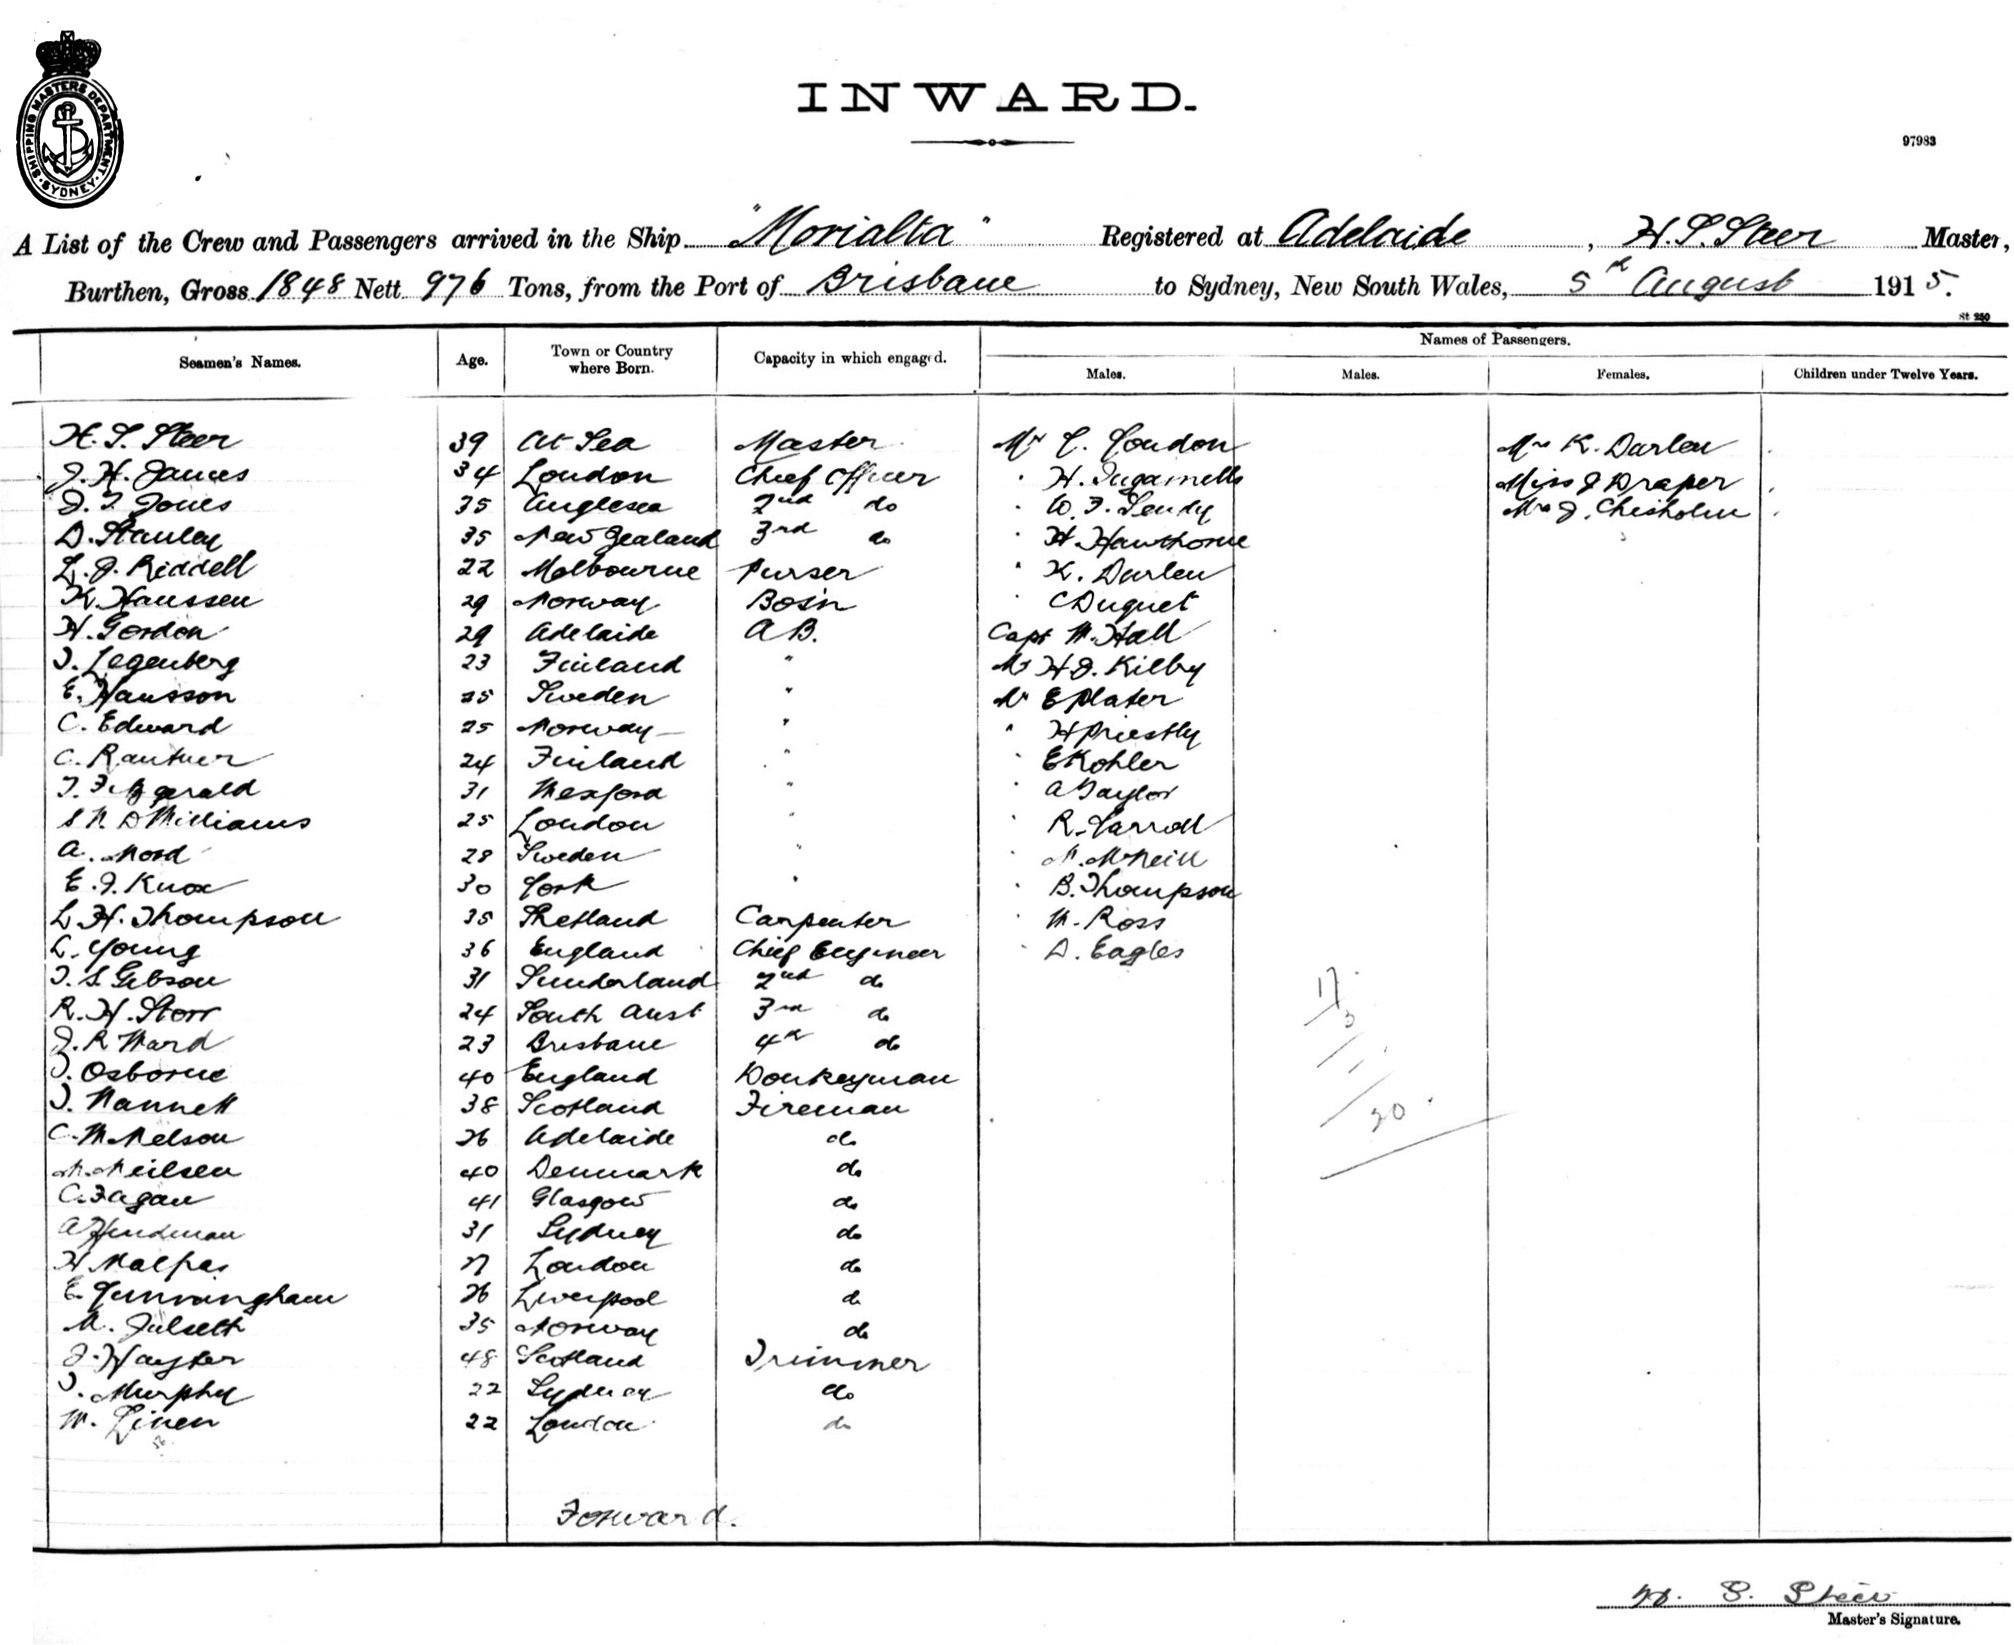 SHIPPING MASTERS DEPARTMENT
SYDNEY
INWARD.
97983
A List of the Crew and Passengers arrived in the Ship "Morialta" Registered at Adelaide, H. S. Steer Master,
Burthen, Gross 1848 Nett 976 Tons, from the Port of Brisbane to Sydney, New South Wales, 5th August 1915.
St 250
Seamen's Names. Age. Town or Country where Born. Capacity in which engaged. Names of Passengers.
Males. Males. Females. Children under Twelve Years.
H. S. Steer 39 At Sea Master Mr C. Condon Mrs K. Darlen
J. H. James 34 London Chief Officer " H. Ingamells Miss J Draper
J. T. Jones 35 Anglesea 2nd do " W. F. Tendy Mrs J. Chisholm
D. Stanley 35 New Zealand 3rd do " H. Hawthorne
L. J. Riddell 22 Melbourne Purser " K. Darlen
K. Hanssen 29 Norway Bos'n " C Duguet
H. Gordon 29 Adelaide A B. Capt W. Hall
J. Legenberg 23 Finland " Mr H J. Kilby
E. Hansson 25 Sweden " Mr E Plater
C. Edward 25 Norway " " H Priestly
C. Rantner 24 Finland " " E Kohler
T. Fitzgerald 31 Wexford " " A Taylor
S W. D Williams 25 London " " R. Carroll
A. Nord 28 Sweden " " N. McNeill
E. J. Knox 30 Cork " " B. Thompson
L. H. Thompson 35 Shetland Carpenter " W. Ross
L. Young 36 England Chief Engineer " D. Eagles
T. S. Gibson 31 Sunderland 2nd do
R. H. Storr 24 South Aust 3rd do
J. R Ward 23 Brisbane 4th do
T. Osborne 40 England Donkeyman
T. Nannett 38 Scotland Fireman
C. W Nelson 26 Adelaide do
N. Neilsen 40 Denmark do
C. Fagan 41 Glasgow do
A Hindman 31 Sydney do
H Malpas 27 London do
E. Cunningham 26 Liverpool do
M. Julseth 35 Norway do
J. Hayter 48 Scotland Trimmer
T. Murphy 22 Sydney do
W. Linen 22 London do
17
3
20
Forward.
H. S. Steer
Master's Signature.